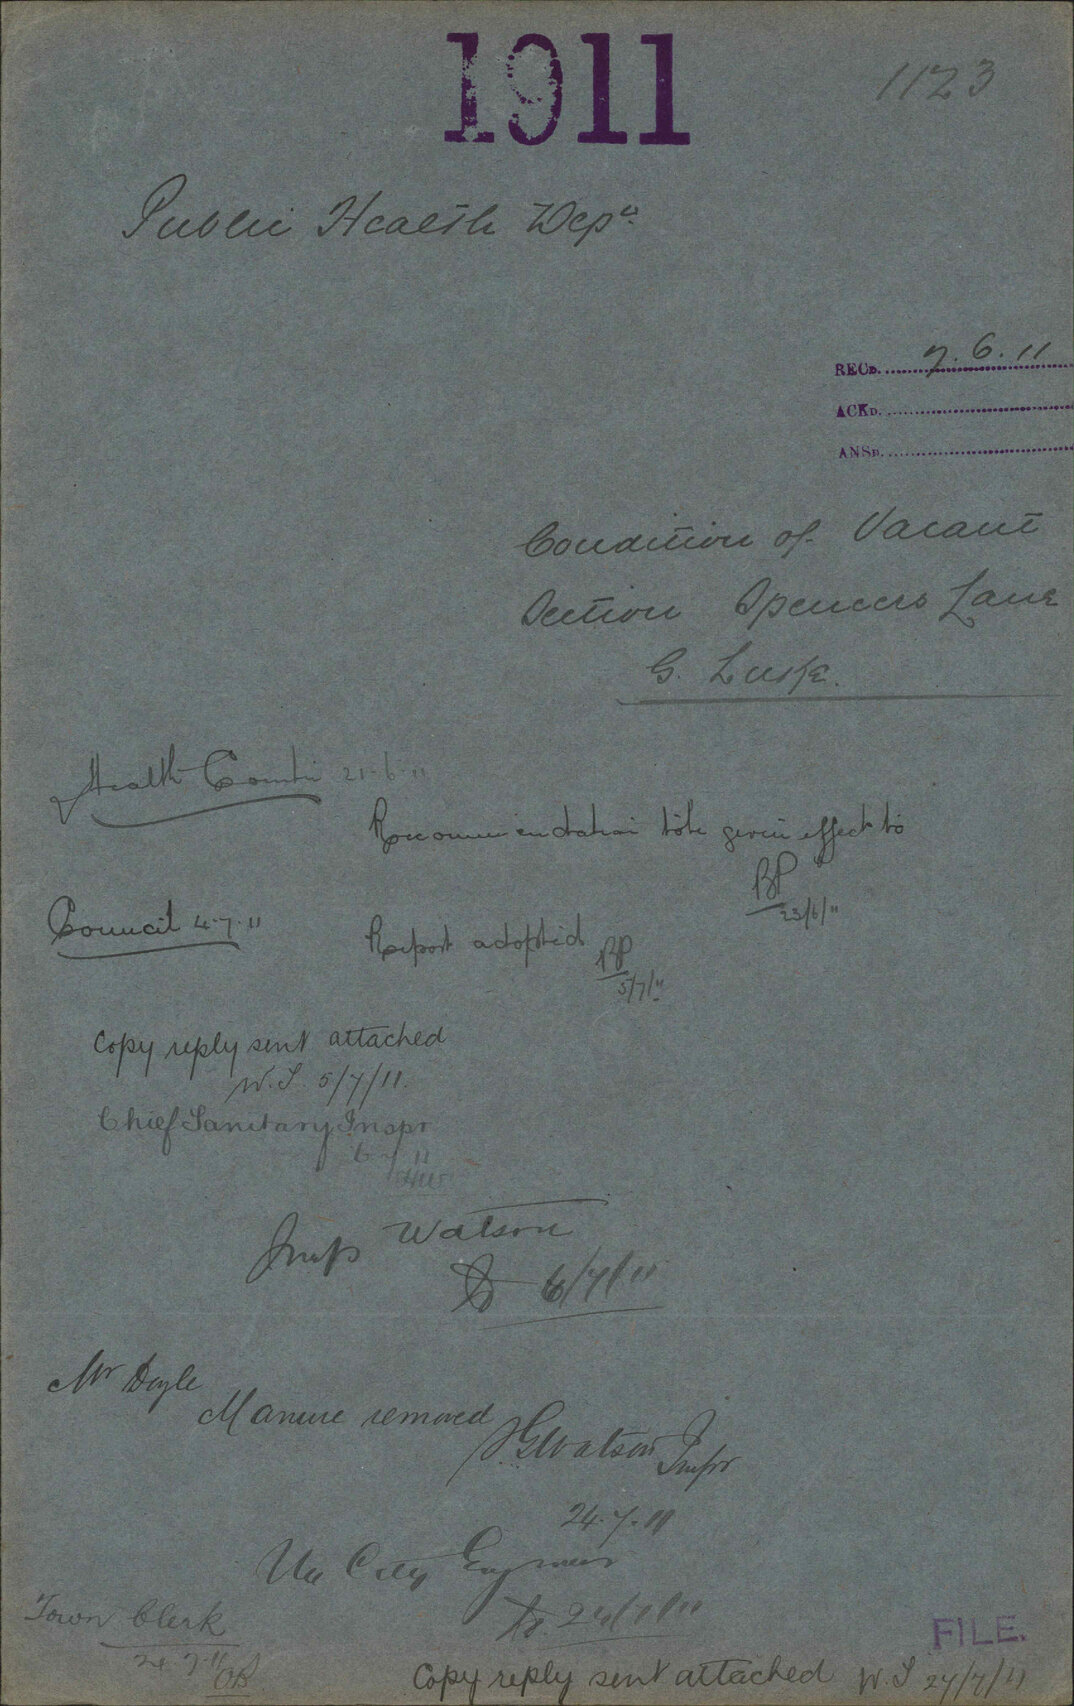 1911
1123
Public Health Dept.
RECD. 7.6.11
ACKD.
ANSD.
Condition of Vacant
Section Spencers Lane
G. Luske.
Health Comtee 21-6-11
Recommendation to be given effect to
BP
23/6/11
Council 4.7.11
Report adopted BP
5/7/11
Copy reply sent attached
W.S 5/7/11.
Chief Sanitary Inspr
6 7 11
Insp Watson
6/7/11
Mr Doyle
Manure removed
Watson Inspr
24.7.11
City Engineer
24/7/11
Town Clerk
24 7 11
FILE.
Copy reply sent attached W.S 24/7/11